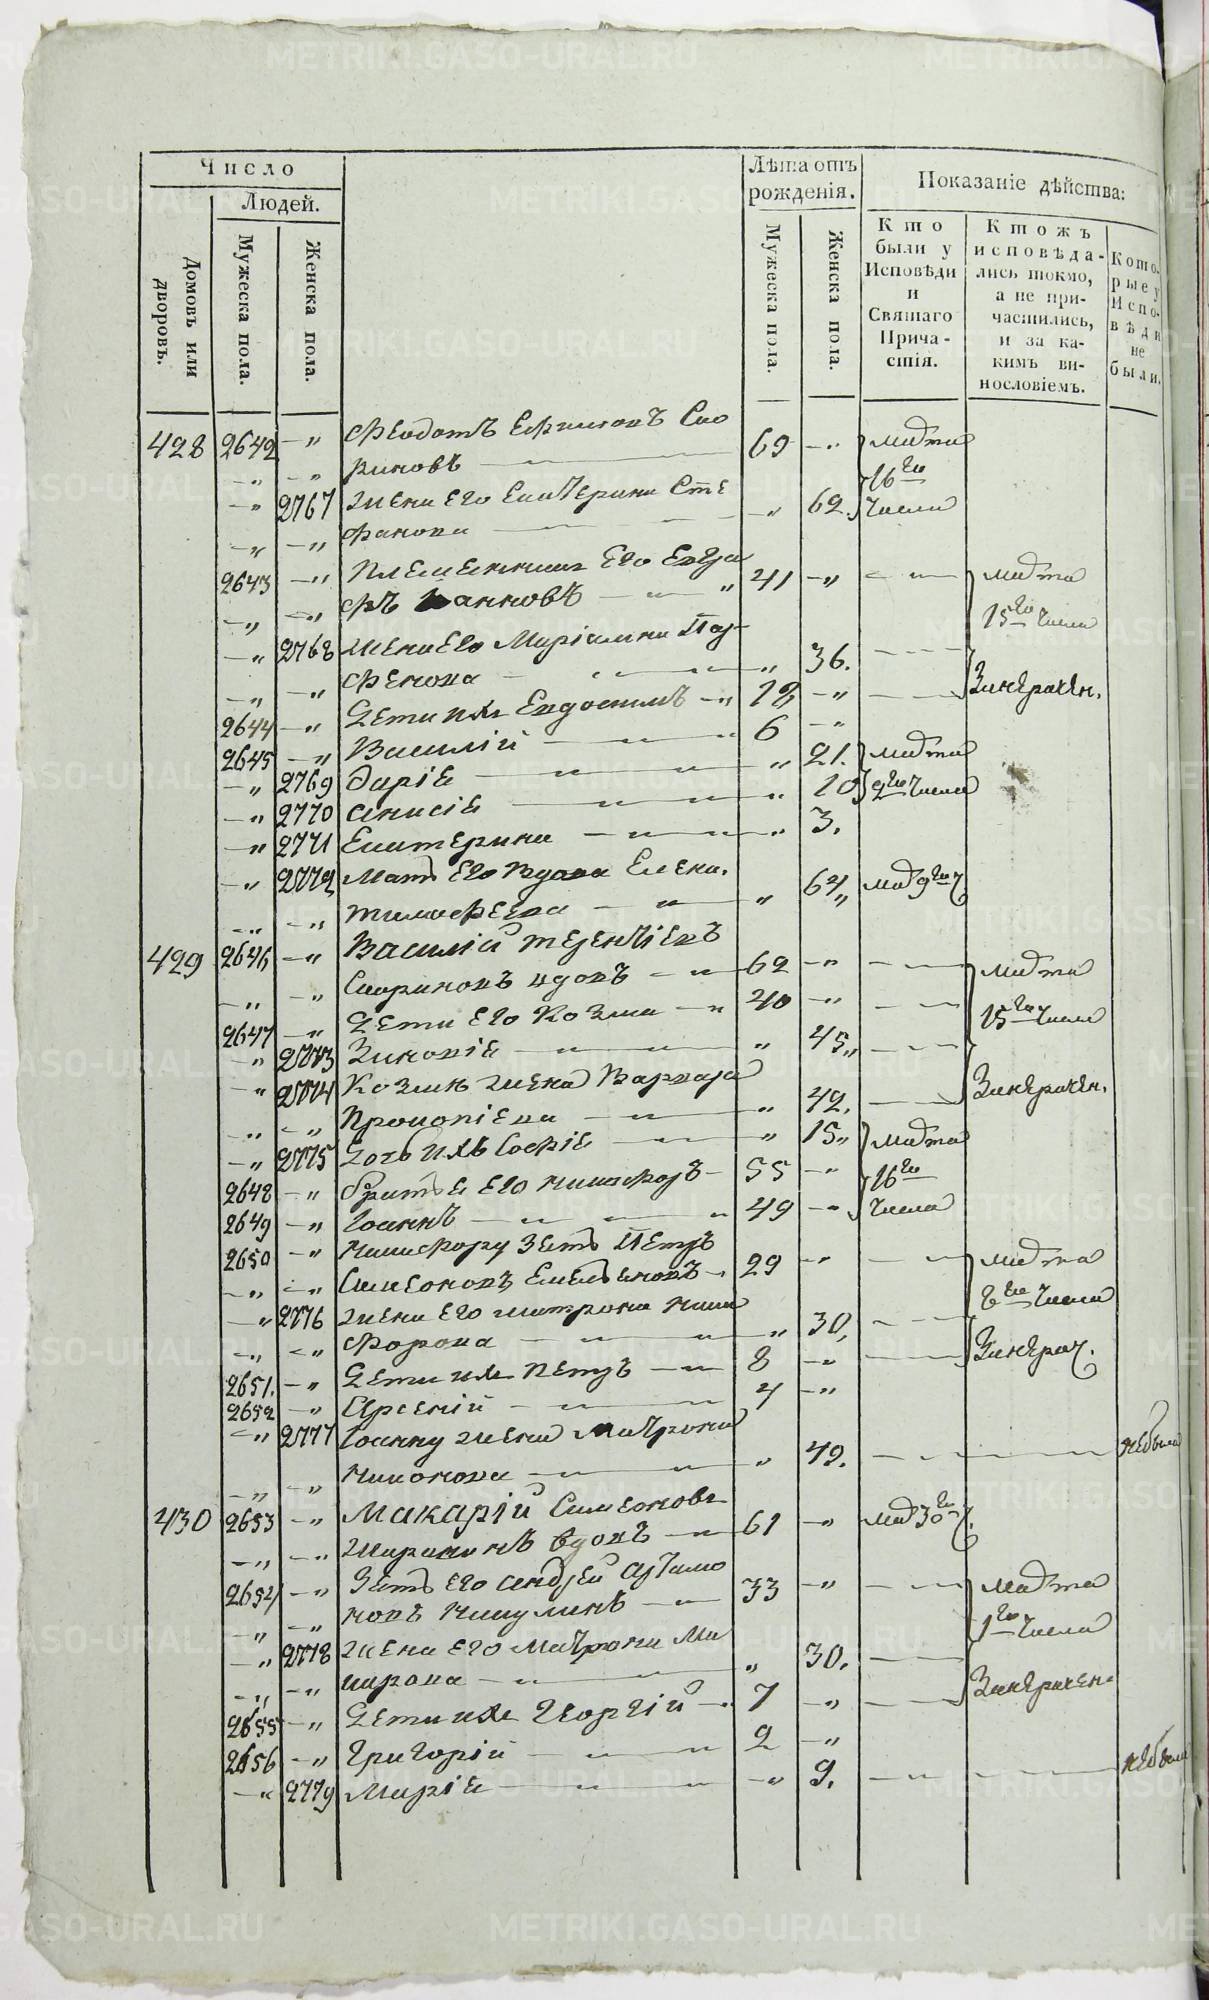 METRIKI.GASO-URAL.RU
Число
Людей.
Домовъ или дворовъ.
Мужеска пола.
Женска пола.
Лѣта отъ рожденія.
Мужеска пола.
Женска пола.
Показаніе дѣйства:
Кто были у Исповѣди и Святаго Причастія.
Ктожъ исповѣда-
лись токмо,
а не при-
частились,
и за ка-
кимъ ви-
нословіемъ.
Кото-
рые у
Испо-
вѣди
не
были.
428 2642 —„ Феодотъ Ефимовъ 69 —„
—„ 2767 жена его Екатерина Сте „ 62. числа
фанова
2643 —„ Племянникъ его 41 —„ марта
фъ Іанновъ 15го числа
—„ 2768 жена его Маріамна Пар- „ 36.
фенова
2644 —„ Дети ихъ Евдокимъ 12 —„
2645 —„ Василій 6 —„
—„ 2769 Дарія „ 21. марта
—„ 2770 Анисія „ 10 9го числа
—„ 2771 Екатерина „ 3.
—„ 2772 Мать его вдова Елена „ 64
Тимофеева
429 2646 —„ Василій Терентіевъ
вдовъ 62 —„ марта
2647 —„ Дети его Козма 40 —„ 15го числа
—„ 2773 Зиновія „ 45„
—„ 2774 Козмы жена Варвара
Прокопіева „ 42.
—„ 2775 Дочь ихъ Софія „ 15„ марта
2648 —„ братья его Никифоръ 55 —„ 16го
2649 —„ Іоаннъ 49 —„ числа
2650 —„ Никифору зять Петръ
Симеоновъ Емельяновъ 29 —„ марта
—„ 2776 жена его Матрона Ники 8го числа
форова „ 30.
2651. —„ Дети ихъ Петръ 8 —„
2652 —„ Арсеній 4 —„
—„ 2777 Іоанну жена Матрона
Никонова „ 49. небыла
430 2653 —„ Макарій Симеоновъ
вдовъ 61 —„
2654 —„ Зять его Андрей Артамо
новъ Никулинъ 33 —„ марта
1го числа
—„ 2778 жена его Матрона Ма
карова „ 30.
2655 —„ Дети ихъ Георгій 7 —„
2656 —„ Григорій 2 —„
—„ 2779 Марія —„ 9. небыла